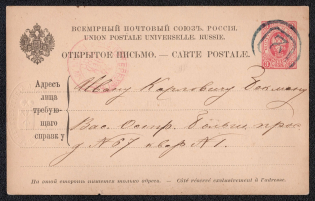 ВСЕМІРНЫЙ ПОЧТОВЫЙ СОЮЗЪ. РОССІЯ.
UNION POSTALE UNIVERSELLE. RUSSIE.
ОТКРЫТОЕ ПИСЬМО. — CARTE POSTALE.
Адресъ
лица
требую-
щаго
справку
Ивану Карловичу
Вас. Остр. Больш. просп.
д № 57 квар № 1.
На этой сторонѣ пишется только адресъ. — Côté réservé exclusivement à l'adresse.